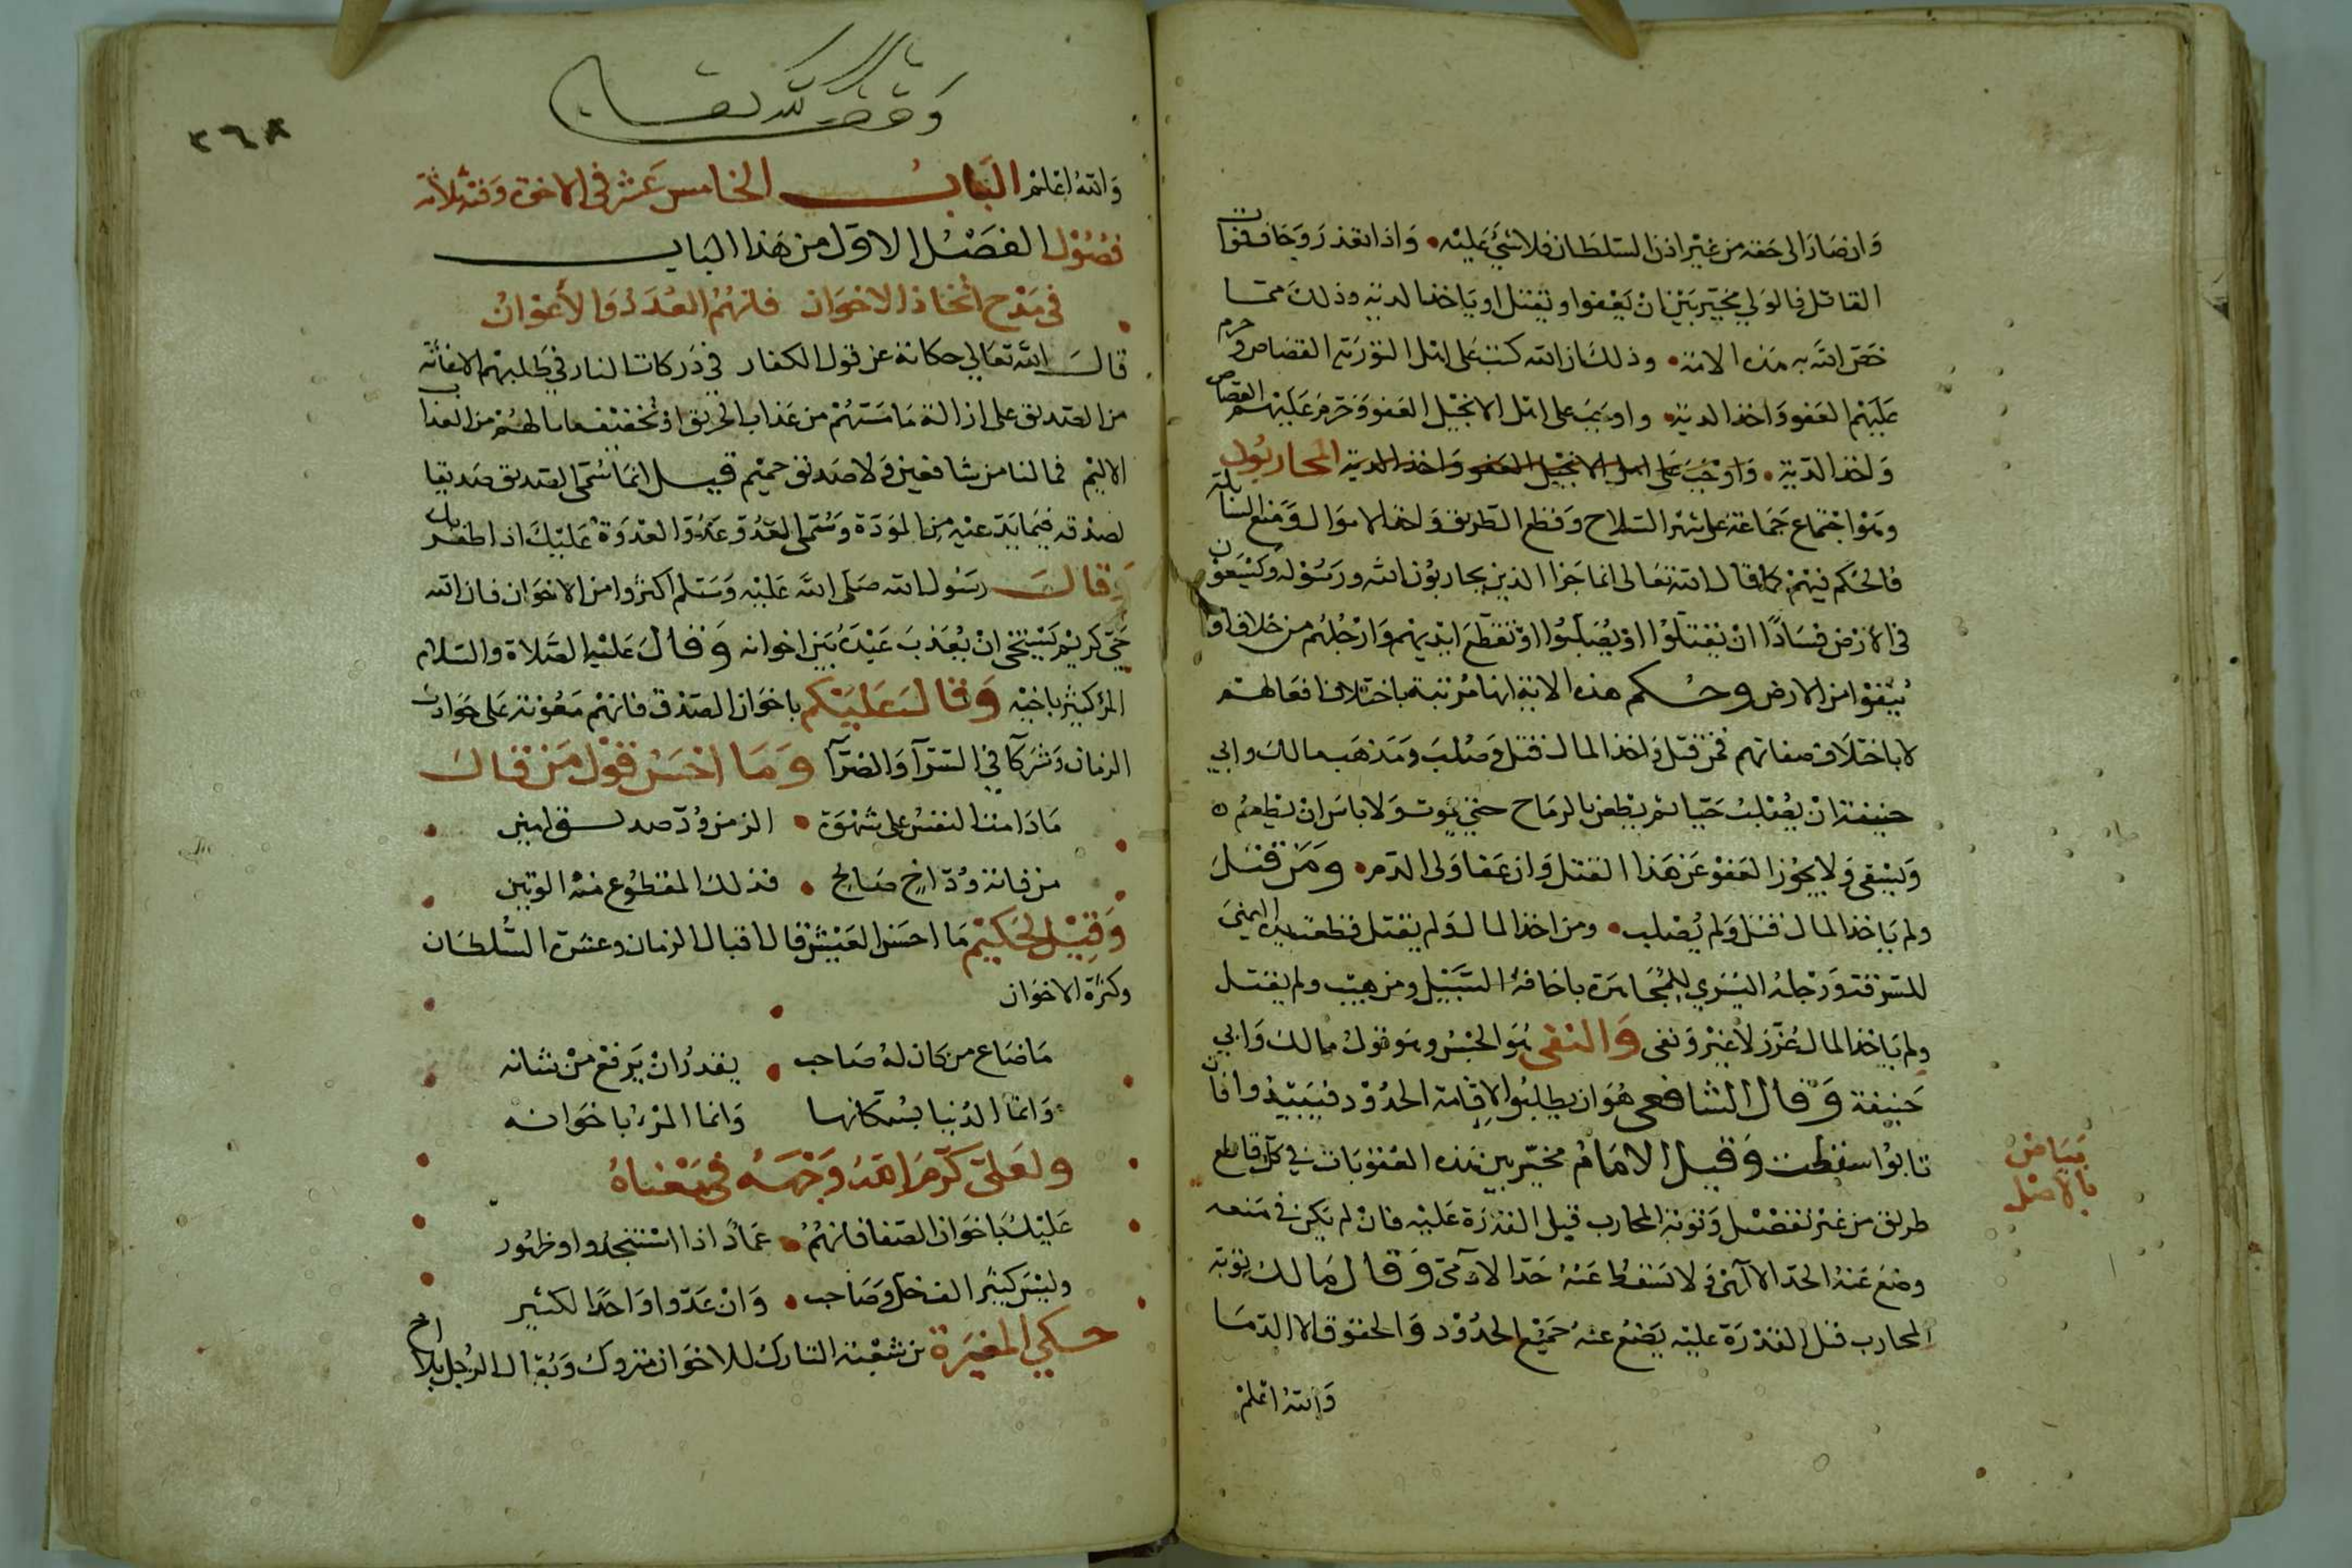 وان صار الى حقه من غير اذن السلطان فلا شئ عليه واذا تعذر وجا فقتوا
القاتل فالولي مخير بين ان يعفوا او يقتل او ياخذ الدية وذلك مما
خص الله به هذه الامة وذلك ان الله كتب على اهل التورية القصاص وحرم
عليهم العفو واخذ الدية واوجب على اهل الانجيل العفو وحرم عليهم القصاص
واخذ الدية واوجب على اهل الانجيل العفو واخذ الدية المحاربون
وهو اجتماع جماعة على شهر السلاح وقطع الطريق واخذ الاموال ومنع السابلة
فالحكم فيهم كما قال الله تعالى انما جزا الذين يحاربون الله ورسوله ويسعون
في الارض فسادا ان يقتلوا او يصلبوا او تقطع ايديهم وارجلهم من خلاف او
ينفوا من الارض وحكم هذه الاية انها مرتبة باختلاف افعالهم
لا باختلاف صفاتهم فمن قتل واخذ المال قتل وصلب ومذهب مالك وابي
حنيفة ان يصلب حيا ثم يطعن بالرماح حتى يموت ولا باس ان يطعم
ويسقى ولا يجوز العفو عن هذا القتل وان عفا ولى الدم ومن قتل
ولم ياخذ المال قتل ولم يصلب ومن اخذ المال ولم يقتل قطعت يده اليمنى
للسرقة ورجله اليسرى للمجاهرة باخافة السبيل ومن هيب ولم يقتل
ولم ياخذ المال عزر لا غير ونفى والنفى هو الحبس وهو قول مالك وابي
حنيفة وقال الشافعى هو ان يطلبوا لاقامة الحدود فيبعدوا فان
تابوا سقطت وقيل الامام مخير بين هذه العقوبات في كل قاطع
طريق من غير تفصيل وتوبة المحارب قبل القدرة عليه فان لم يكن في منعه
وضع عنه الحد الا الهى ولا تسقط عنه حد الادمى وقال مالك توبة
المحارب قبل القدرة عليه يضع عنه جميع الحدود والحقوق الا الدما
والله اعلم
بياض
بالاصل
وقف لله تعالى
٢٦٨
والله اعلم الباب الخامس عشر في الاخوة وفيه ثلاثة
فصول الفصل الاول من هذا الباب
في مدح اتخاذ الاخوان فانهم العدد والاعوان
قال الله تعالي حكاية عن قول الكفار في دركات النار في طلبهم الاغاثة
من الصديق على ازالة ما مسهم من عذاب الحريق او تخفيف ما بهم من العذاب
الاليم فما لنا من شافعين ولا صديق حميم قيل انما سمى الصديق صديقا
لصدقه فيما يدعيه من المودة وسمى العدو عدوا لعدوه عليك اذا ظفر بك
وقال رسول الله صلى الله عليه وسلم اكثروا من الاخوان فان الله
حي كريم يستحى ان يعذب عبده بين اخوانه وقال عليه الصلاة والسلام
المرء كثير باخيه وقال عليكم باخوان الصدق فانهم معونة على حوادث
الزمان وشركا في السرا والضرا وما احسن قول من قال
ما ذاقت النفس على شهوة الذ من ود صديق امين
من فاته ود اخ صالح فذلك المقطوع منه الوتين
وقيل لحكيم ما احسن العيش قال اقبال الزمان وعز السلطان
وكثرة الاخوان
ما ضاع من كان له صاحب يقدر ان يرفع من شانه
وانما الدنيا بسكانها وانما المرء باخوانه
ولعلى كرم الله وجهه في معناه
عليك باخوان الصفا فانهم عماد اذا استنجدوا وظهور
وليس كثير الف خل وصاحب وان عدوا واحدا لكثير
حكي المغيرة بن شعبة التارك للاخوان متروك ويقال الرجل بلا اخ